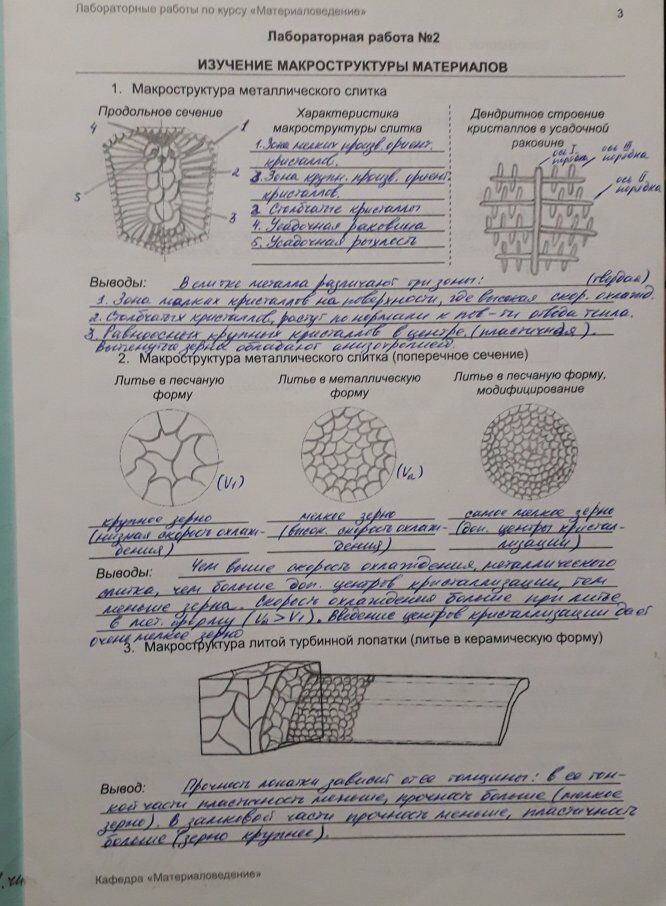 Лабораторные работы по курсу «Материаловедение»
3
Лабораторная работа №2
ИЗУЧЕНИЕ МАКРОСТРУКТУРЫ МАТЕРИАЛОВ
1. Макроструктура металлического слитка
Продольное сечение
4
1
2
5
3
Характеристика
макроструктуры слитка
1. Зона мелких произв. ориент.
кристаллов.
3. Зона крупн. произв. ориент
кристаллов.
2 Столбчатые кристаллы
4. Усадочная раковина
5. Усадочная рыхлость
Дендритное строение
кристаллов в усадочной
раковине
ось I порядка
ось III порядка
ось II порядка
Выводы: В слитке металла различают три зоны: (твердая)
1. Зона мелких кристаллов на поверхности, где высокая скор. охлажд.
2. Столбчатых кристаллов, растут по нормали к пов-ти отвода тепла.
3. Равноосных крупных кристаллов в центре. (пластичная).
Вытянутые зерна обладают анизотропией.
2. Макроструктура металлического слитка (поперечное сечение)
Литье в песчаную
форму
(V₁)
крупное зерно
(низкая скорость охлаж-
дения)
Литье в металлическую
форму
(V₂)
мелкое зерно
(высок. скорость охлаж-
дения)
Литье в песчаную форму,
модифицирование
самое мелкое зерно
(доп. центры кристал-
лизации)
Выводы: Чем выше скорость охлаждения, металлического
слитка, чем больше доп. центров кристаллизации, тем
меньше зерна. Скорость охлаждения больше при литье
в мет. форму (V₂ > V₁). Введение центров кристаллизации дает
очень мелкое зерно
3. Макроструктура литой турбинной лопатки (литье в керамическую форму)
Вывод: Прочность лопатки зависит от ее толщины: в ее тон-
кой части пластичность меньше, прочность больше (мелкое
зерно). В замковой части прочность меньше, пластичность
больше (зерно крупнее).
Кафедра «Материаловедение»